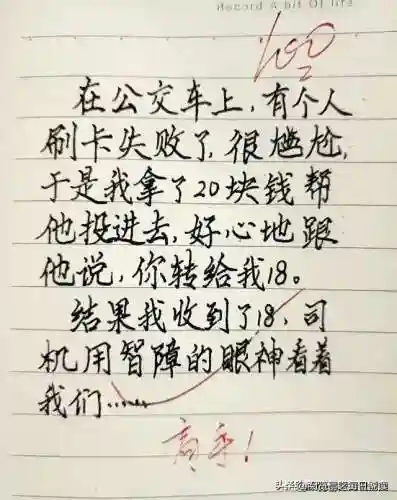 Record A bit Of life
100
在公交车上,有个人
刷卡失败了,很尴尬,
于是我拿了20块钱帮
他投进去,好心地跟
他说,你转给我18。
结果我收到了18,司
机用智障的眼神看着
我们……
高手!